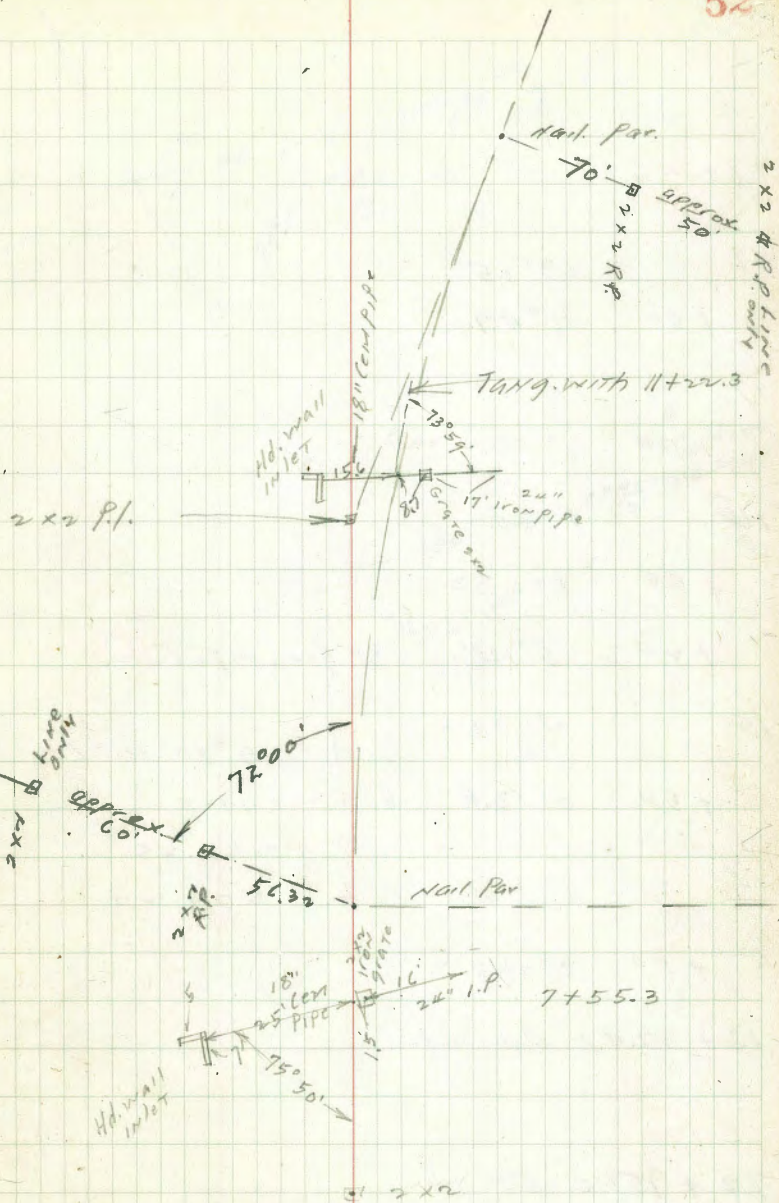 52
Nail. Par.
70'
approx
50'
2 x 2 R.P.
2 x 2 R.P. Line
only
18" Cem pipe
Tang. with 11+22.3
73° 59'
Hd. wall
inlet
15.6
8.5
Grate 2x2
17'
24"
iron pipe
2 x 2 P.I.
Line
only
72°00'
approx.
60'
2 x 2
2 x 2
R.P.
56.32
Nail Par
2 x 2
iron
grate
18"
25' Cem
pipe
16
24" I.P.
7+55.3
5
7'
1.5
75° 50'
Hd. wall
inlet
2 x 2